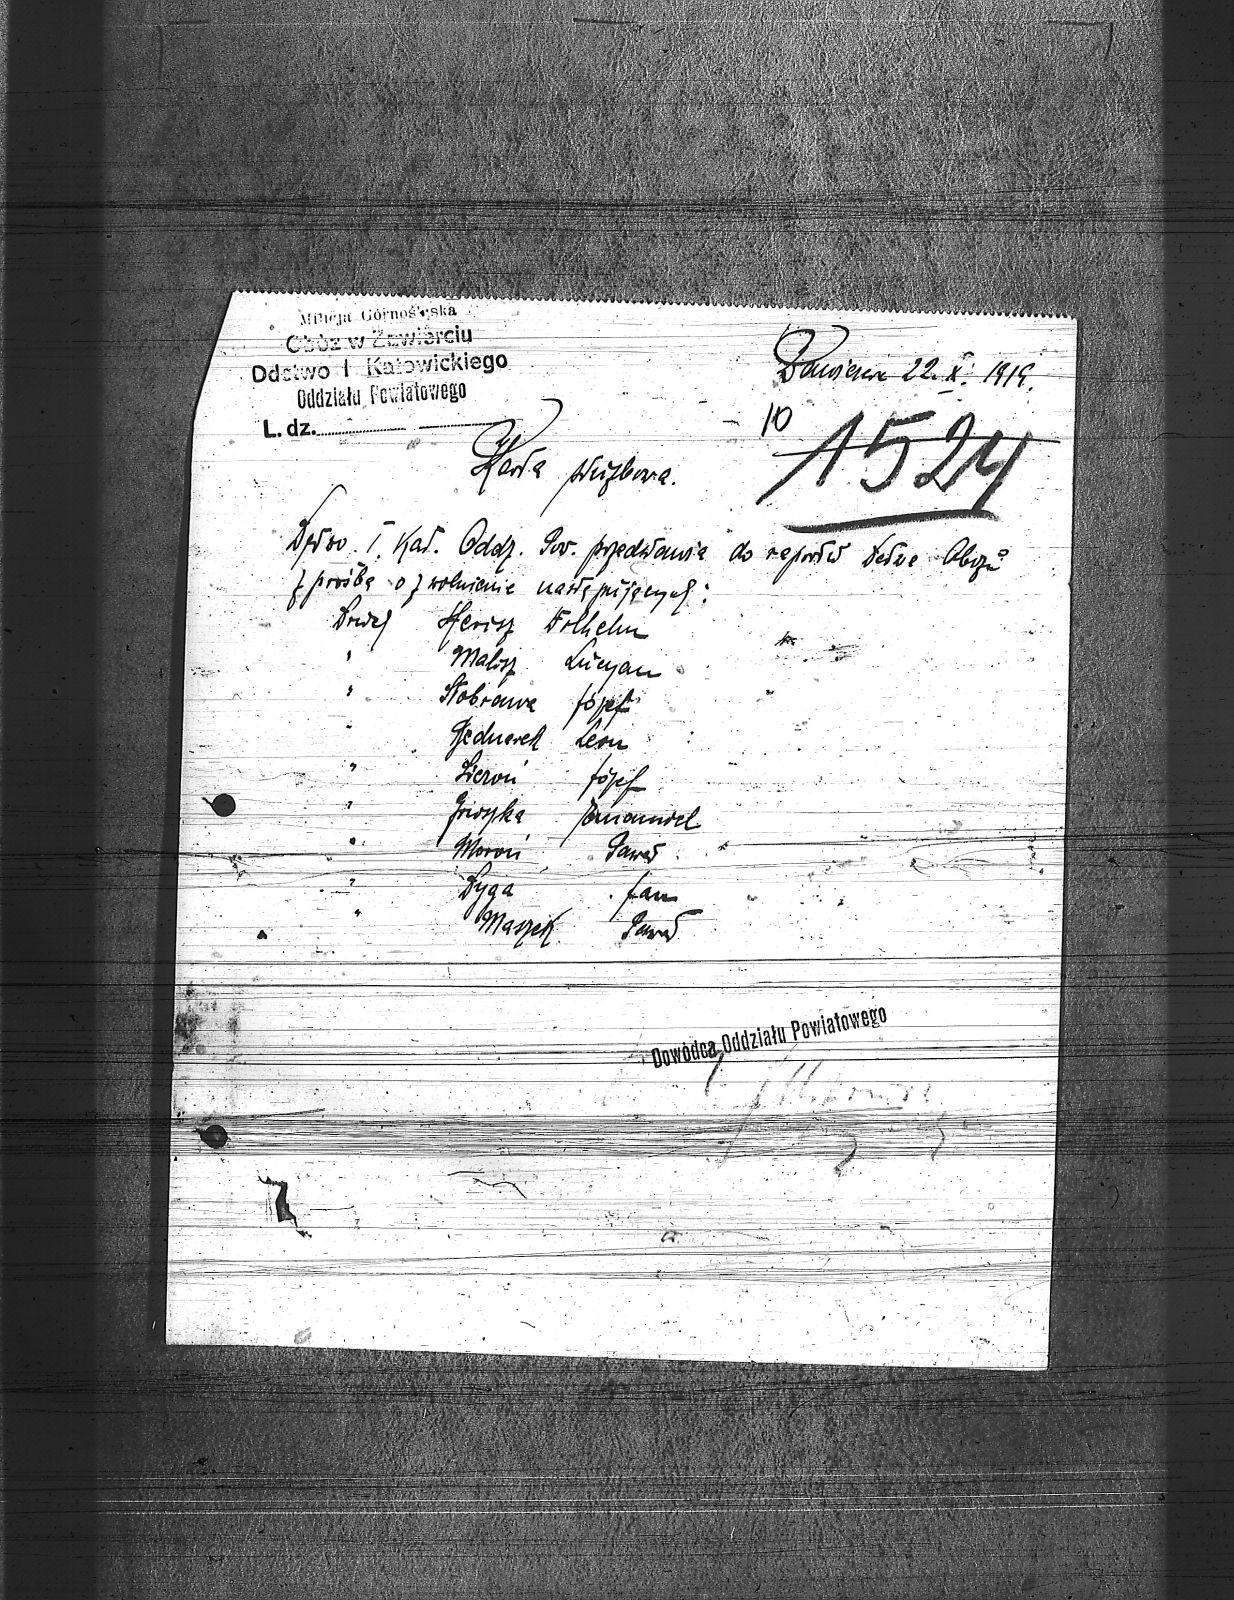 Milicja Górnośląska
Obóz w Zawierciu
Ddztwo I Katowickiego
Oddziału Powiatowego
L. dz.
Zawiercie 22. X. 1919.
10
1524
Karta służbowa.
Dztwo I. Kat. Oddz. Pow. przedstawia do raportu Dztwa Obozu
z prośbą o zwolnienie następujących:
Druch Herisz Wilhelm
" Malisz Lucyan
" Stobrawa Józef
" Jednorek Leon
" Sieroń Józef
" Emanuel
" Moroń Paweł
" Dyga Jan
" Maszek Paweł
Dowódca Oddziału Powiatowego